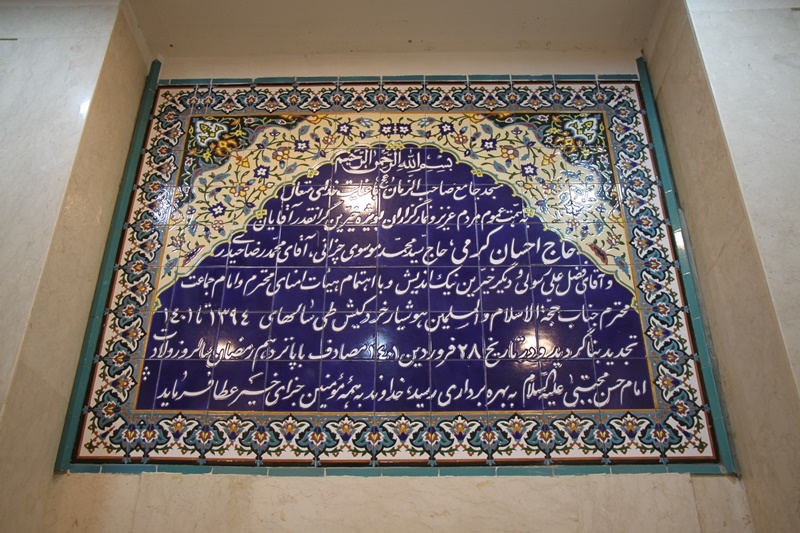 بسم الله الرحمن الرحیم
مسجد جامع صاحب الزمان (عج) با عنایت خدای متعال
و همت عموم مردم عزیز و کارگزاران بویژه خیرین گرانقدر آقایان
حاج احسان کرمی، حاج سید محمد موسوی چرائی، آقای محمدرضا حیدری
و آقای فضل علی سولی و دیگر خیرین نیک اندیش و با اهتمام هیئات امنای محترم و امام جماعت
محترم جناب حجة الاسلام و المسلمین هوشیار خردکیش طی سالهای ۱۳۹۴ تا ۱۴۰۱
تجدید بنا گردید و در تاریخ ۲۸ فروردین ۱۴۰۱ مصادف با پانزدهم رمضان سالروز ولادت
امام حسن مجتبی علیه السلام به بهره برداری رسید؛ خداوند به همه مؤمنین جزای خیر عطا فرماید